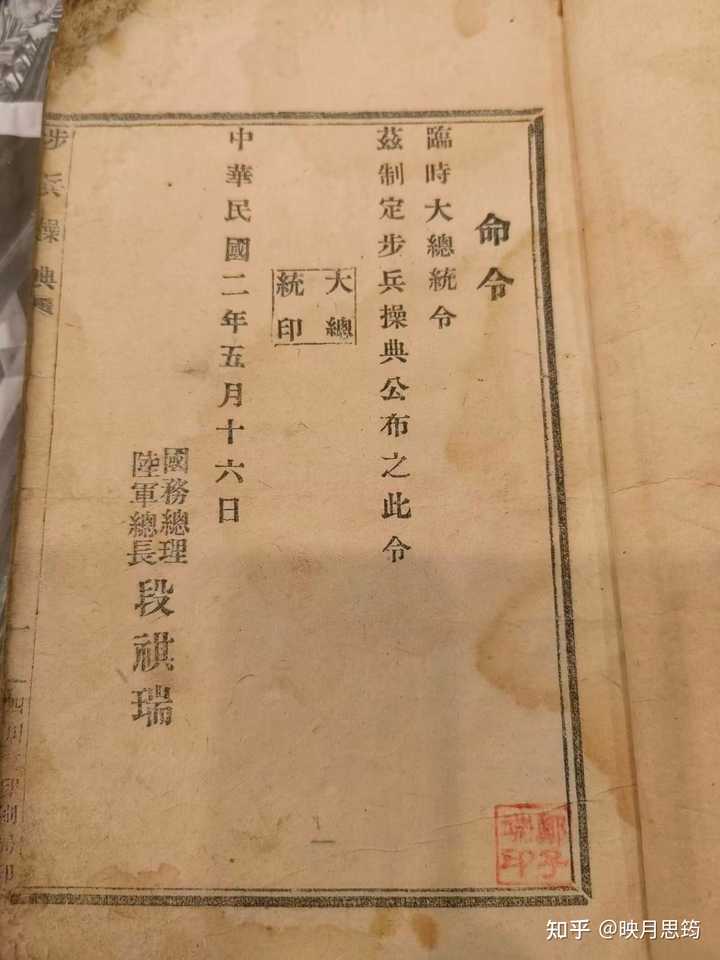 命令
臨時大總統令
茲制定步兵操典公布之此令
大總
統印
中華民國二年五月十六日
國務總理
陸軍總長
段祺瑞
步兵操典
一
鄭子
瑞印
知乎 @映月思筠